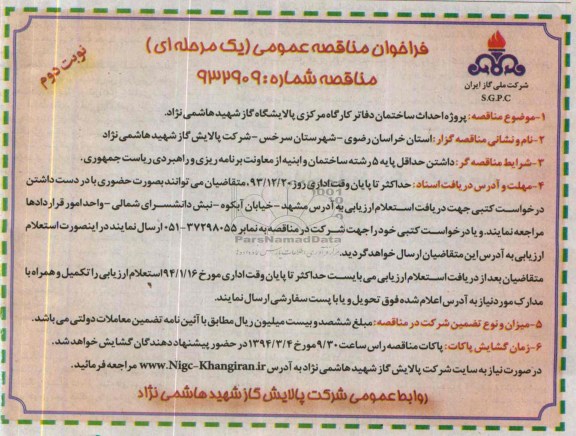 فراخوان مناقصه عمومی (یک مرحله ای)
مناقصه شماره: ۹۳۲۹۰۹
نوبت دوم
شرکت ملی گاز ایران
S.G.P.C
۱-موضوع مناقصه: پروژه احداث ساختمان دفاتر کارگاه مرکزی پالایشگاه گاز شهید هاشمی نژاد.
۲-نام و نشانی مناقصه گزار: استان خراسان رضوی -شهرستان سرخس -شرکت پالایش گاز شهید هاشمی نژاد
۳-شرایط مناقصه گر: داشتن حداقل پایه ۵ رشته ساختمان و ابنیه از معاونت برنامه ریزی و راهبردی ریاست جمهوری.
۴-مهلت و آدرس دریافت اسناد: حداکثر تا پایان وقت اداری روز ۹۳/۱۲/۲۰، متقاضیان می توانند بصورت حضوری با در دست داشتن
درخواست کتبی جهت دریافت استعلام ارزیابی به آدرس مشهد-خیابان آبکوه-نبش دانشسرای شمالی -واحد امور قراردادها
مراجعه نمایند. و یا درخواست کتبی خود را جهت شرکت در مناقصه به نمابر ۳۷۲۹۸۰۵۵-۰۵۱ ارسال نمایند در اینصورت استعلام
ارزیابی به آدرس این متقاضیان ارسال خواهد گردید.
ParsNamadData
متقاضیان بعد از دریافت استعلام ارزیابی می بایست حداکثر تا پایان وقت اداری مورخ ۹۴/۱/۱۶ استعلام ارزیابی را تکمیل و همراه با
مدارک مورد نیاز به آدرس اعلام شده فوق تحویل و یا با پست سفارشی ارسال نمایند.
۵-میزان و نوع تضمین شرکت در مناقصه: مبلغ ششصد و بیست میلیون ریال مطابق با آئین نامه تضمین معاملات دولتی می باشد.
۶-زمان گشایش پاکات: پاکات مناقصه راس ساعت ۹/۳۰ مورخ ۱۳۹۴/۳/۴ در حضور پیشنهاد دهندگان گشایش خواهد شد.
در صورت نیاز به سایت شرکت پالایش گاز شهید هاشمی نژاد به آدرس www.Nigc-Khangiran.ir مراجعه فرمائید.
روابط عمومی شرکت پالایش گاز شهید هاشمی نژاد